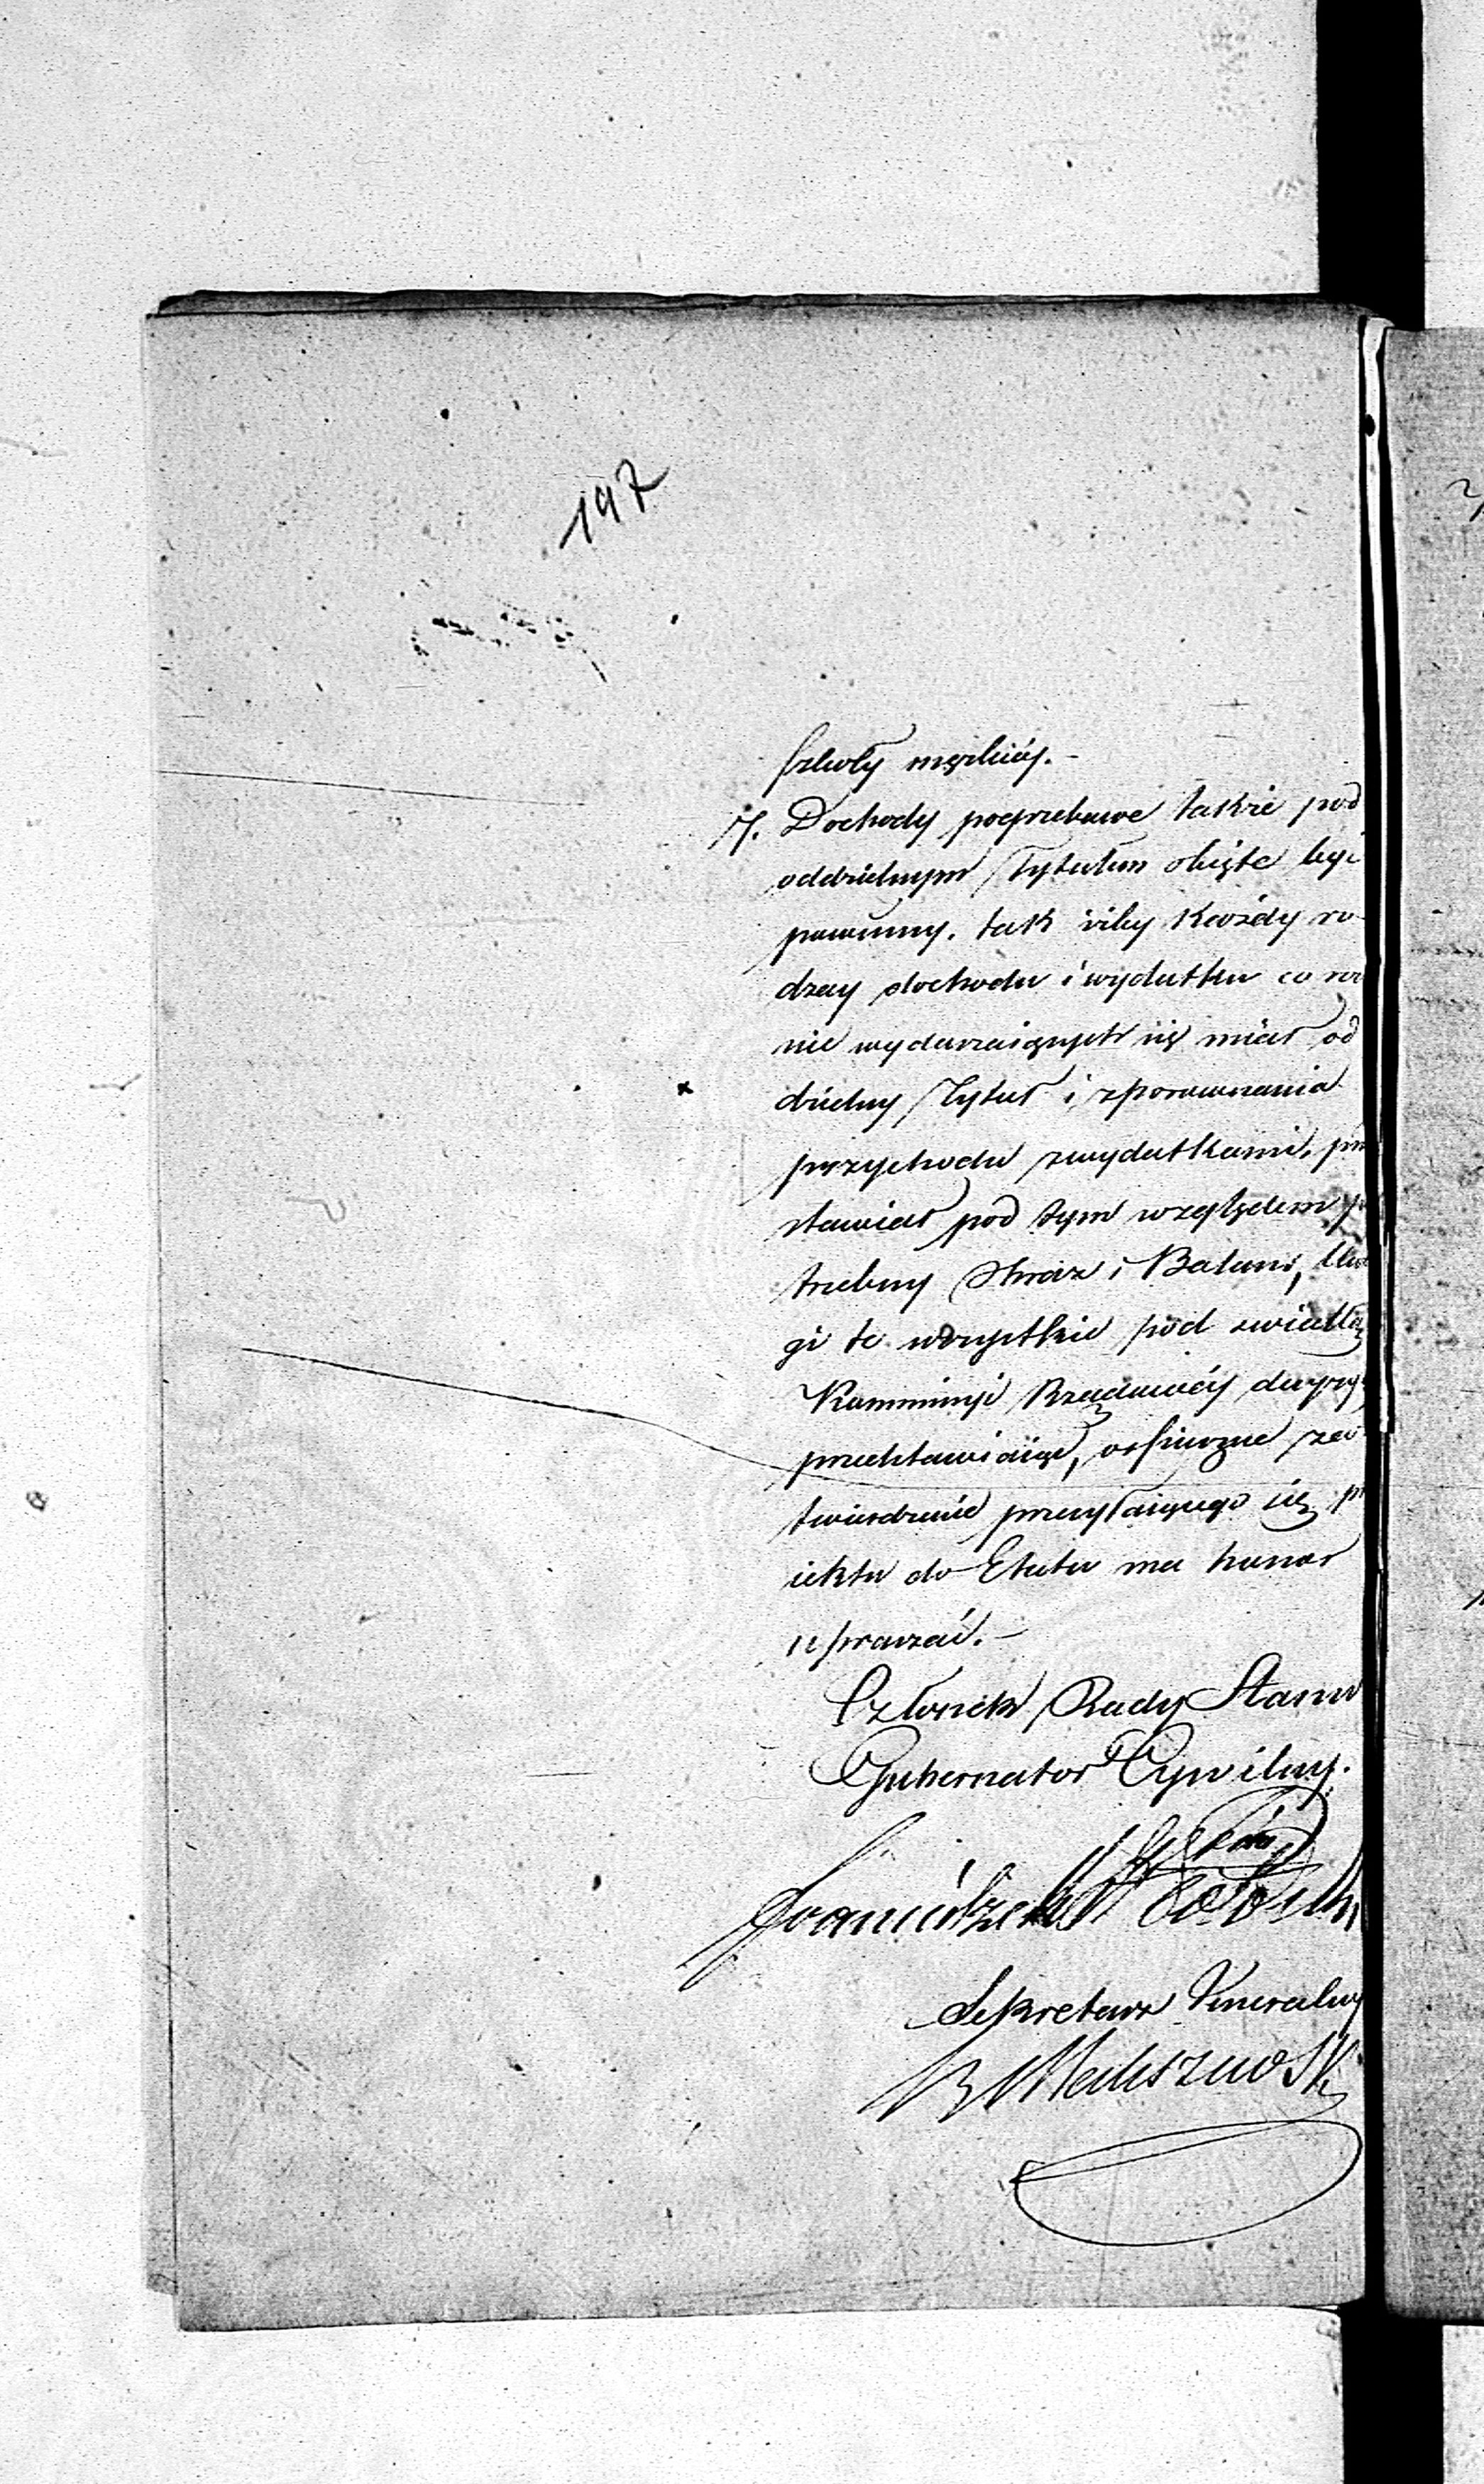 197
szkoły męzkiéy. -
7. Dochody pogrzebowe także pod
oddzielnym Tytułem obięte być
powinny, tak iżby każdy ro-
dzay dochodu i wydatku co
nie wydarzaiących się miał od
dzielny Tytuł i zporownania
przychodu zwydatkami,
stawiał pod tym względem
trzebny Obraz i Balans,
gi te wszystkie pod światłą
Kommissyi Rządowéy
przedstawiaiąc,
twierdzenie przesyłaiącego się
iektu do Etatu ma honor
upraszać. -
Członek Rady Stanu
Gubernator Cywilny.
Sekretarz Generalny